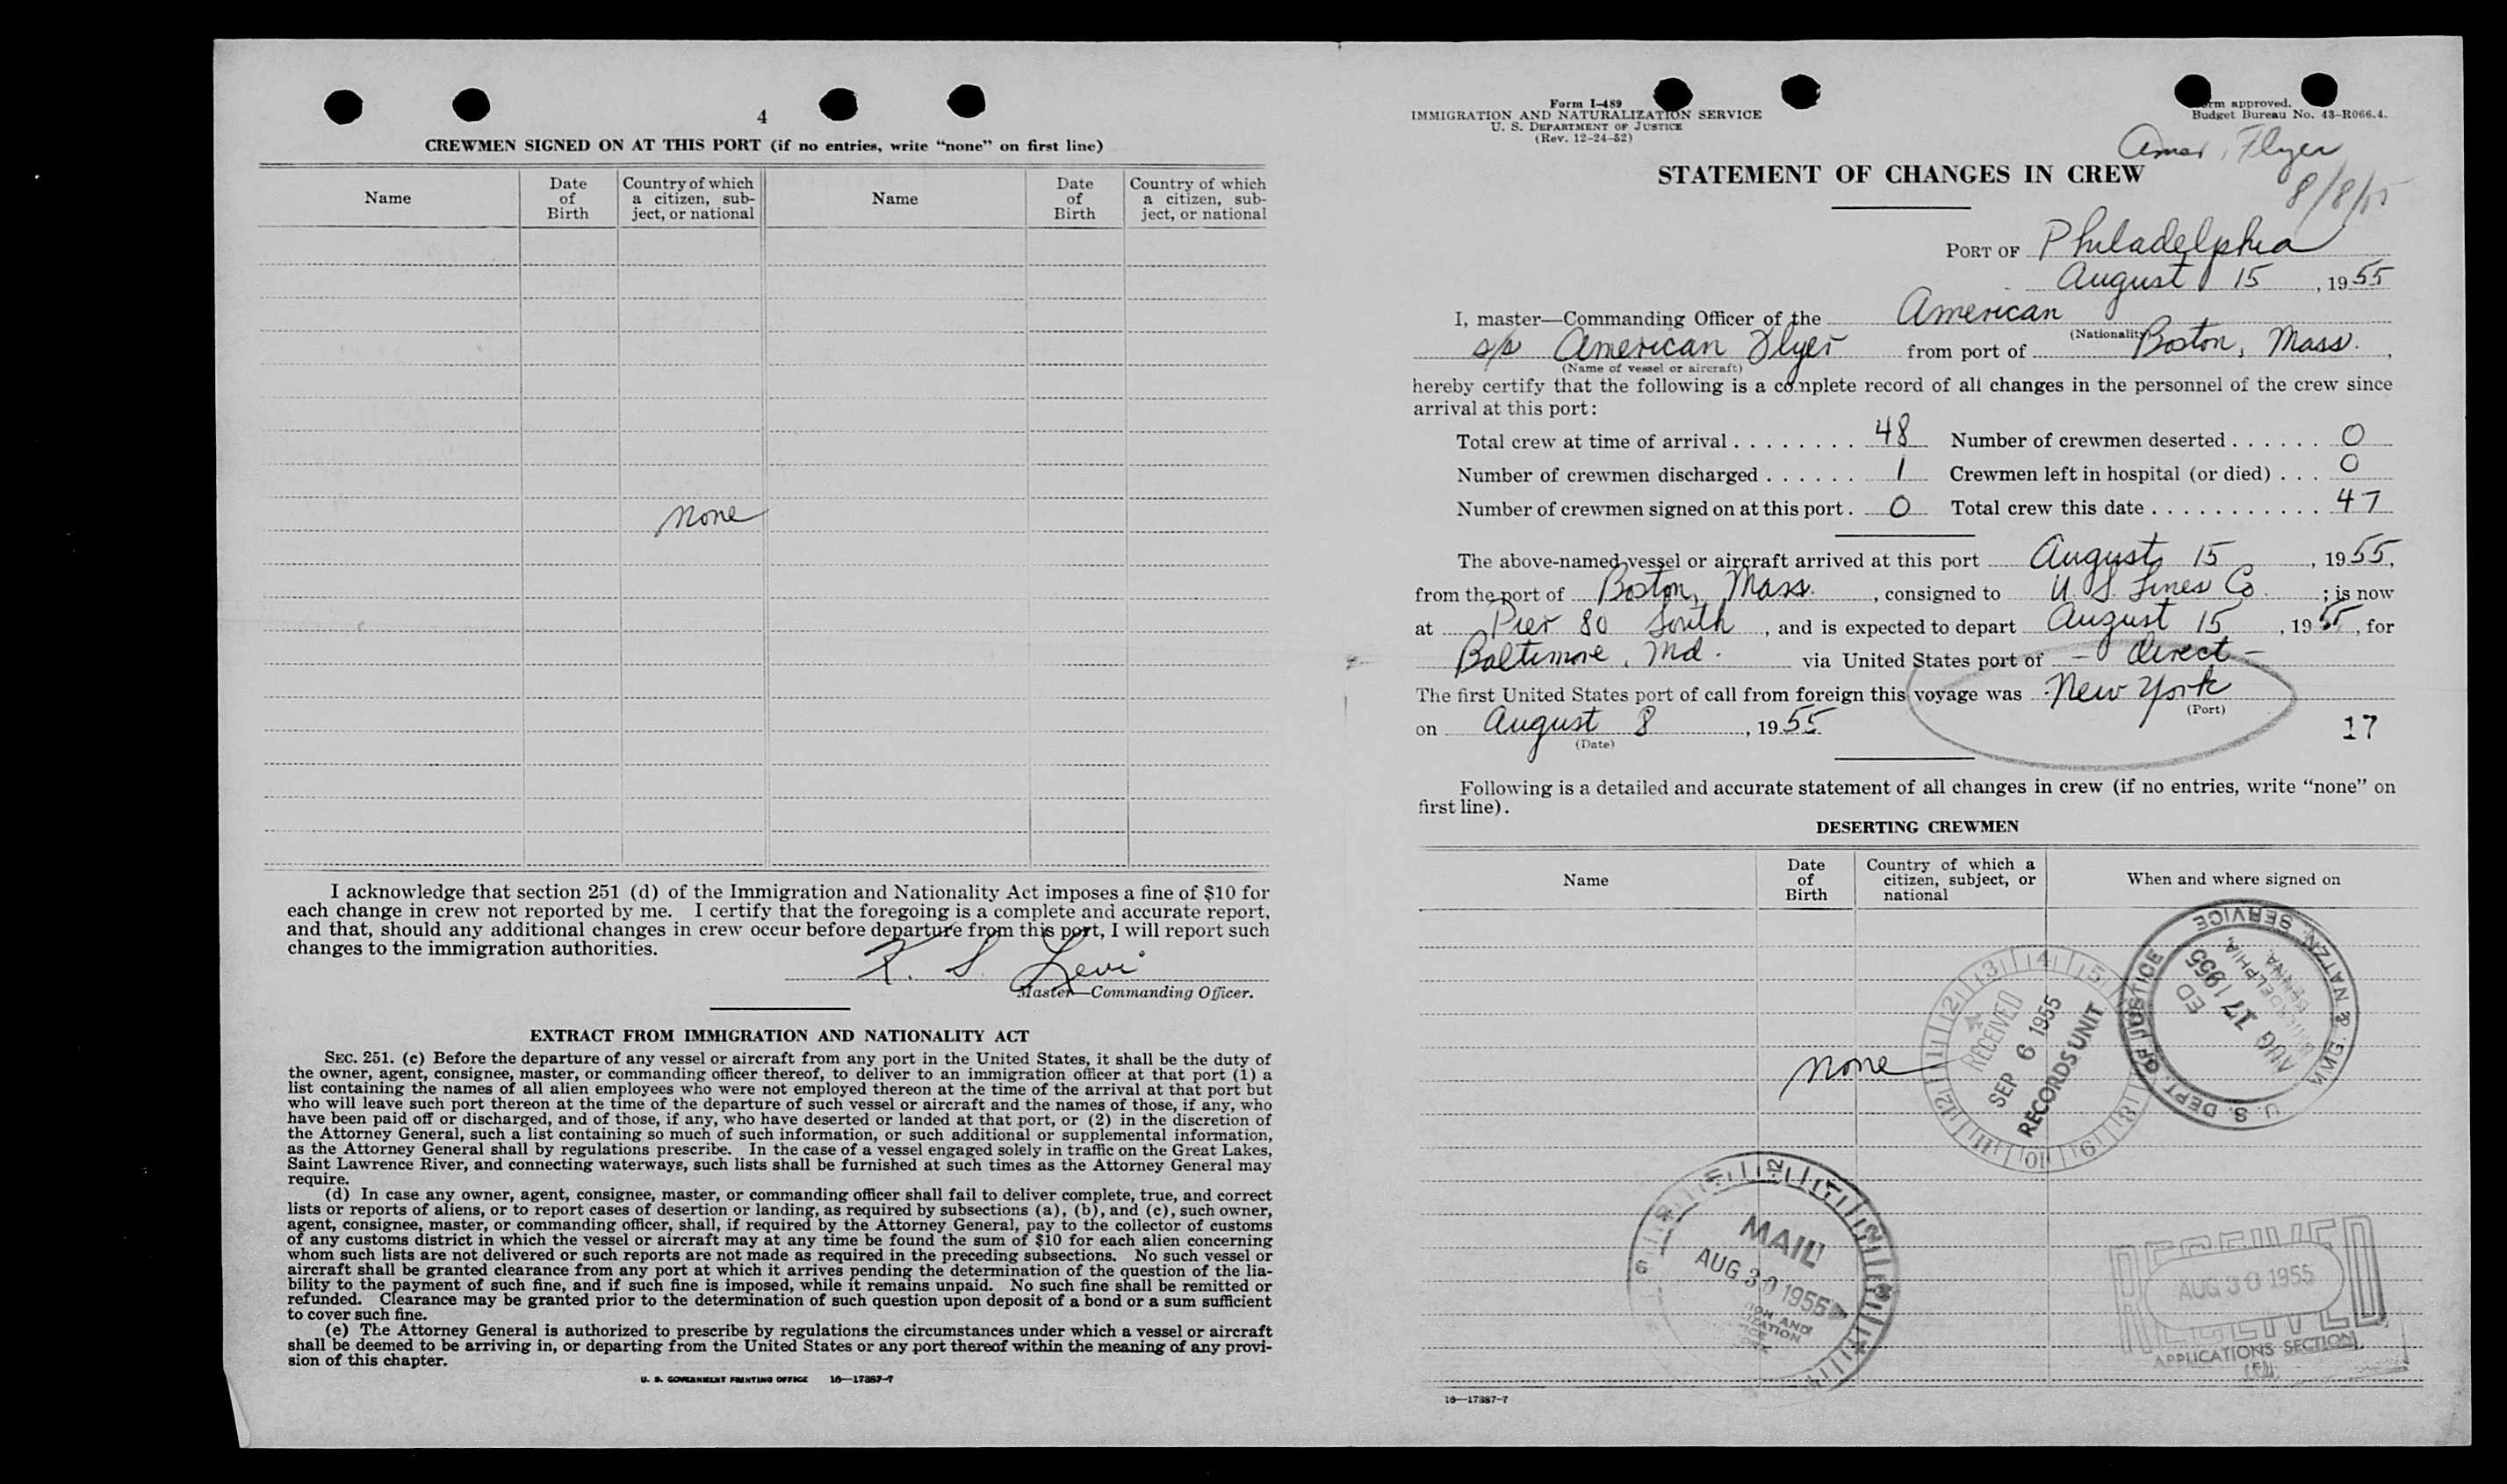 4
CREWMEN SIGNED ON AT THIS PORT (if no entries, write "none" on first line)
Name
Date of Birth
Country of which a citizen, sub-ject, or national
Name
Date of Birth
Country of which a citizen, sub-ject, or national
none
I acknowledge that section 251 (d) of the Immigration and Nationality Act imposes a fine of $10 for
each change in crew not reported by me. I certify that the foregoing is a complete and accurate report,
and that, should any additional changes in crew occur before departure from this port, I will report such
changes to the immigration authorities.
S. Levi
Master—Commanding Officer.
EXTRACT FROM IMMIGRATION AND NATIONALITY ACT
SEC. 251. (c) Before the departure of any vessel or aircraft from any port in the United States, it shall be the duty of
the owner, agent, consignee, master, or commanding officer thereof, to deliver to an immigration officer at that port (1) a
list containing the names of all alien employees who were not employed thereon at the time of the arrival at that port but
who will leave such port thereon at the time of the departure of such vessel or aircraft and the names of those, if any, who
have been paid off or discharged, and of those, if any, who have deserted or landed at that port, or (2) in the discretion of
the Attorney General, such a list containing so much of such information, or such additional or supplemental information,
as the Attorney General shall by regulations prescribe. In the case of a vessel engaged solely in traffic on the Great Lakes,
Saint Lawrence River, and connecting waterways, such lists shall be furnished at such times as the Attorney General may
require.
(d) In case any owner, agent, consignee, master, or commanding officer shall fail to deliver complete, true, and correct
lists or reports of aliens, or to report cases of desertion or landing, as required by subsections (a), (b), and (c), such owner,
agent, consignee, master, or commanding officer, shall, if required by the Attorney General, pay to the collector of customs
of any customs district in which the vessel or aircraft may at any time be found the sum of $10 for each alien concerning
whom such lists are not delivered or such reports are not made as required in the preceding subsections. No such vessel or
aircraft shall be granted clearance from any port at which it arrives pending the determination of the question of the lia-
bility to the payment of such fine, and if such fine is imposed, while it remains unpaid. No such fine shall be remitted or
refunded. Clearance may be granted prior to the determination of such question upon deposit of a bond or a sum sufficient
to cover such fine.
(e) The Attorney General is authorized to prescribe by regulations the circumstances under which a vessel or aircraft
shall be deemed to be arriving in, or departing from the United States or any port thereof within the meaning of any provi-
sion of this chapter.
U. S. GOVERNMENT PRINTING OFFICE 16—17387-7
Form I-489
IMMIGRATION AND NATURALIZATION SERVICE
U. S. DEPARTMENT OF JUSTICE
(Rev. 12-24-52)
rm approved.
Budget Bureau No. 43-R066.4.
Amer. Flyer
8/8/55
STATEMENT OF CHANGES IN CREW
PORT OF Philadelphia
August 15, 1955
I, master—Commanding Officer of the American
(Nationality)
s/s American Flyer from port of Boston, Mass.,
(Name of vessel or aircraft)
hereby certify that the following is a complete record of all changes in the personnel of the crew since
arrival at this port:
Total crew at time of arrival . . . . . . . . 48 Number of crewmen deserted . . . . . . 0
Number of crewmen discharged . . . . . . 1 Crewmen left in hospital (or died) . . . 0
Number of crewmen signed on at this port . 0 Total crew this date . . . . . . . . . . . 47
The above-named vessel or aircraft arrived at this port August 15, 1955,
from the port of Boston, Mass., consigned to U. S. Lines Co.; is now
at Pier 80 South, and is expected to depart August 15, 1955, for
Baltimore, Md. via United States port of - direct -
The first United States port of call from foreign this voyage was New York
(Port)
on August 8, 1955
(Date)
17
Following is a detailed and accurate statement of all changes in crew (if no entries, write "none" on
first line).
DESERTING CREWMEN
Name
Date of Birth
Country of which a citizen, subject, or national
When and where signed on
none
RECEIVED
SEP 6 1955
RECORDS UNIT
U. S. DEPT. OF JUSTICE
IMMG. & NATZN. SERVICE
AUG 17 1955
MAIL
AUG 30 1955
RECEIVED
AUG 30 1955
APPLICATIONS SECTION
16—17387-7